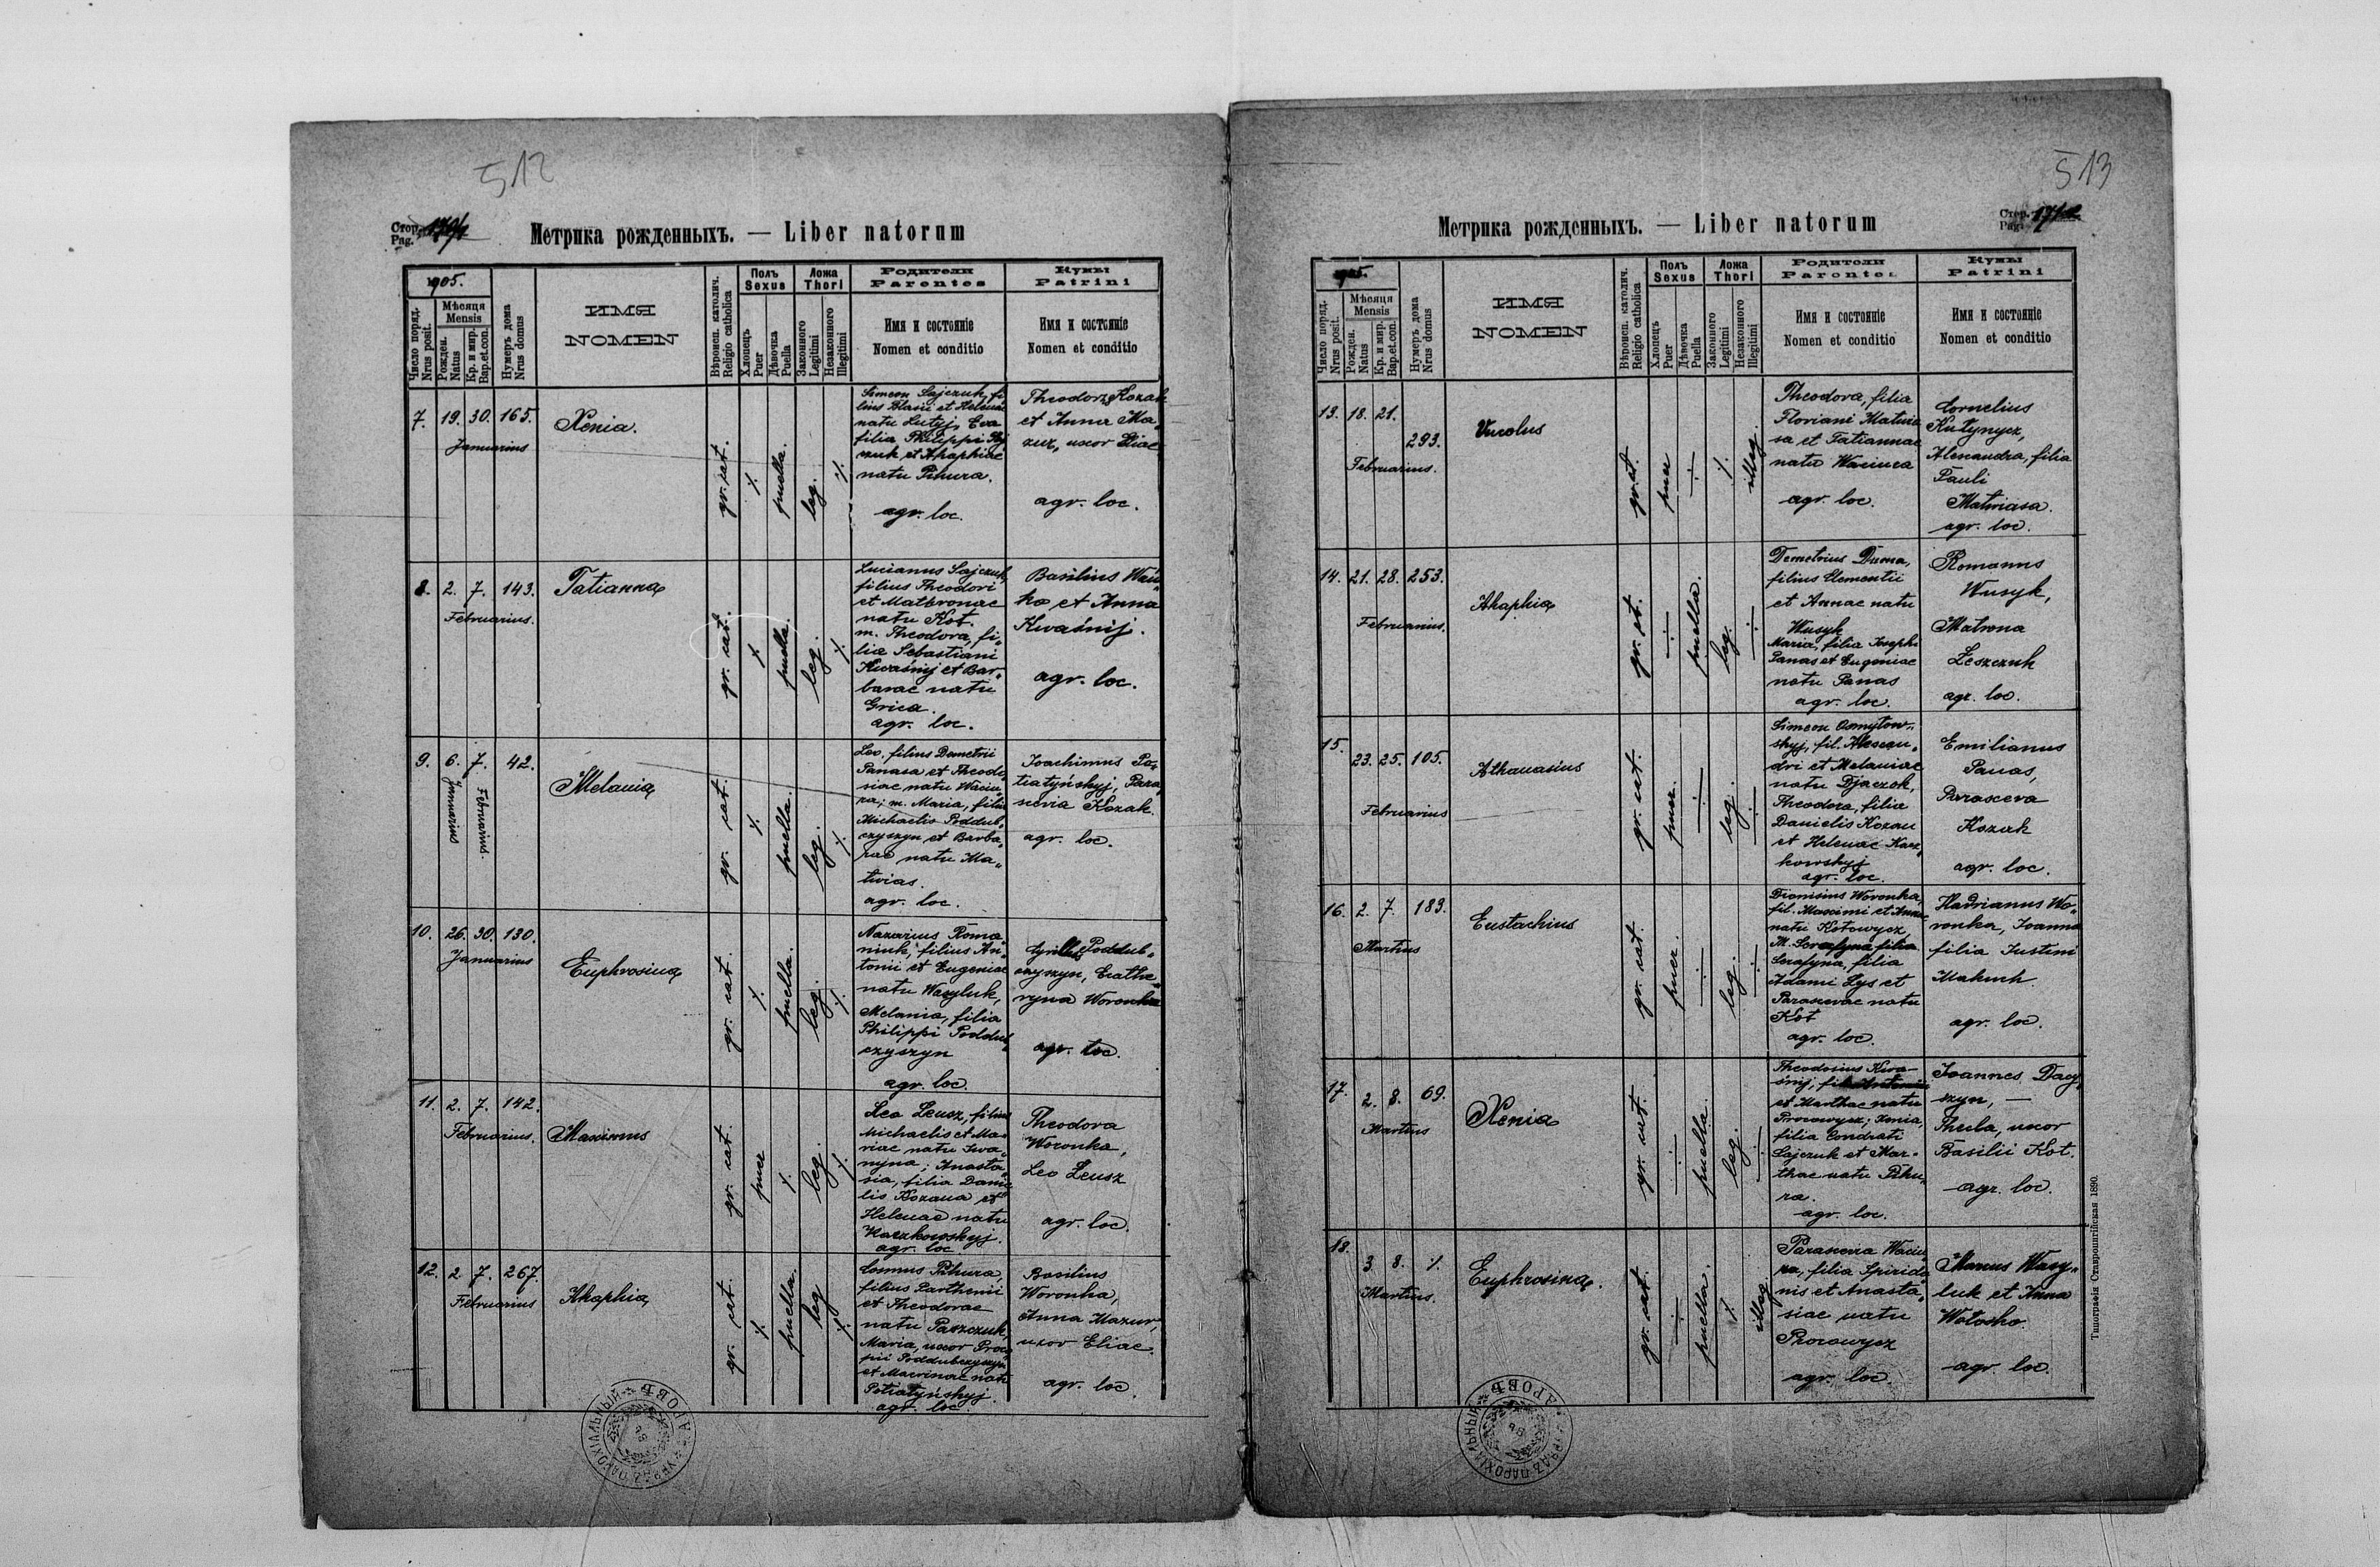 512
Стор.
Pag.
Метрика рожденныхъ. — Liber natorum
1905.
Число поряд.
Nrus posit.
Мѣсяця
Mensis
Рожден.
Natus
Кр. и мир.
Bap.et.con.
Нумеръ дома
Nrus domus
ИМЯ
NOMEN
Вѣроисп. католич.
Religio catholica
Полъ
Sexus
Хлопець
Puer
Дѣвочка
Puella
Ложа
Thori
Законного
Legitimi
Незаконного
Illegitimi
Родители
Parentes
Имя и состояніе
Nomen et conditio
Кумы
Patrini
Имя и состояніе
Nomen et conditio
7. 19. 30. 165.
Januarius
Xenia.
gr. cat.
puella.
leg.
Simeon Sajczuk, fi-
lius Blasii et Helenae
natu Lutyj, Eva
filia Philippi
czuk et Ahaphiae
natu Pihura.
agr. loc.
Theodor Kozak
et Anna Ma„
zur, uxor Eliae
agr. loc.
8. 2. 7. 143.
Februarius.
Tatianna
gr. cat.
puella.
leg.
Lucianus Sajczuk,
filius Theodori
et Mathronae
natu Kot.
m. Theodora, fi„
lia Sebastiani
Kwaśnij et Bar„
barae natu
Grica.
agr. loc.
Basilius
ko et Anna
Kwaśnij.
agr. loc.
9. 6. 7. 42.
Januarius
Februarius.
Melania
gr. cat.
puella.
leg.
Leo. filius Demetrii
Panasa et Theodo
siae natu Waciu„
ra; m. Maria, filia
Michaelis Poddub„
czyszyn et Barba„
rae natu Ma„
twias.
agr. loc.
Joachimus Po„
tiatyńskyj, Para„
scevia Kozak.
agr. loc.
10. 26. 30. 130.
Januarius
Euphrosina
gr. cat.
puella.
leg.
Nazarius Roma„
niuk, filius An„
tonii et Eugeniae
natu Wasyluk,
Melania, filia
Philippi Poddub„
czyszyn
agr. loc.
Cyrillus Poddub„
czyszyn, Cathe„
ryna Woronka
agr. loc.
11. 2. 7. 142.
Februarius.
Maximus
gr. cat.
puer
leg.
Leo Leusz, filius
Michaelis et Ma„
riae natu Iwa„
nyna; Anasta„
sia, filia Danie
lis Kozana et
Helenae natu
Kaczkowskyj.
agr. loc
Theodora
Woronka,
Leo Leusz
agr. loc.
12. 2 7. 267.
Februarius
Ahaphia
gr. cat.
puella.
leg
Cosmus Pihura,
filius Parthenii
et Theodorae
natu Paszczuk,
Maria, uxor Proco
pii Poddubczyszyn
et Macrinae natu
Potiatyńskyj.
agr. loc.
Basilius
Woronka,
Anna Mazur,
uxor Eliae.
agr. loc.
513
Стор.
Pag.
Метрика рожденныхъ. — Liber natorum
Число поряд.
Nrus posit.
Мѣсяця
Mensis
Рожден.
Natus
Кр. и мир.
Bap.et.con.
Нумеръ дома
Nrus domus
ИМЯ
NOMEN
Вѣроисп. католич.
Religio catholica
Полъ
Sexus
Хлопець
Puer
Дѣвочка
Puella
Ложа
Thori
Законного
Legitimi
Незаконного
Illegitimi
Родители
Parentes
Имя и состояніе
Nomen et conditio
Кумы
Patrini
Имя и состояніе
Nomen et conditio
13. 18. 21.
293.
Februarius.
Vucolus
gr. cat.
puer
illeg.
Theodora, filia
Floriani Matwia
sa et Tatiannae
natu Waciura
agr. loc.
Cornelius
Kutynycz,
Alexandra, filia
Pauli
Matwiasa.
agr. loc.
14. 21. 28. 253.
Februarius.
Ahaphia
gr. cat.
puella.
leg.
Demetrius Duma,
filius Clementii
et Annae natu
Wusyk
Maria, filia Josephi
Panas et Eugeniae
natu Panas
agr. loc.
Romanus
Wusyk,
Matrona
Leszczuk
agr. loc.
15.
23. 25. 105.
Februarius
Athanasius
gr. cat.
puer.
leg.
Simeon Osmytow„
skyj, fil. Alexan„
dri et Melaniae
natu Djaczok,
Theodora, filia
Danielis Kozan
et Helenae Kacz„
kowskyj
agr. loc.
Emilianus
Panas,
Parasceva
Kozak
agr. loc.
16. 2. 7. 183.
Martius
Eustachius
gr. cat.
puer.
leg.
Dionisius Woronka,
fil. Maximi et Annae
natu Kotowycz,
Serafyna, filia
Adami Lys et
Parascevae natu
Kot
agr. loc.
Hadrianus Wo„
ronka, Joanna
filia Justini
Makuch.
agr. loc.
17. 2. 8. 69.
Martius
Xenia
gr. cat.
puella.
leg.
Theodosius Kwa-
śnij,
et Marthae natu
Procowycz; Xenia,
filia Condrati
Sajczuk et Mar-
thae natu Pihu„
ra.
agr. loc.
Joannes Dacy
szyn, —
Thecla, uxor
Basilii Kot.
agr. loc.
18.
3 8.
Martius.
Euphrosina.
gr. cat.
puella.
illeg.
Parascevia Waciu„
ra, filia Spirido
nis et Anasta„
siae natu
Procowycz
agr. loc.
Marcus Wasy„
luk et Anna
Wołoszko.
agr. loc.
Типографія Ставропигійская 1890.